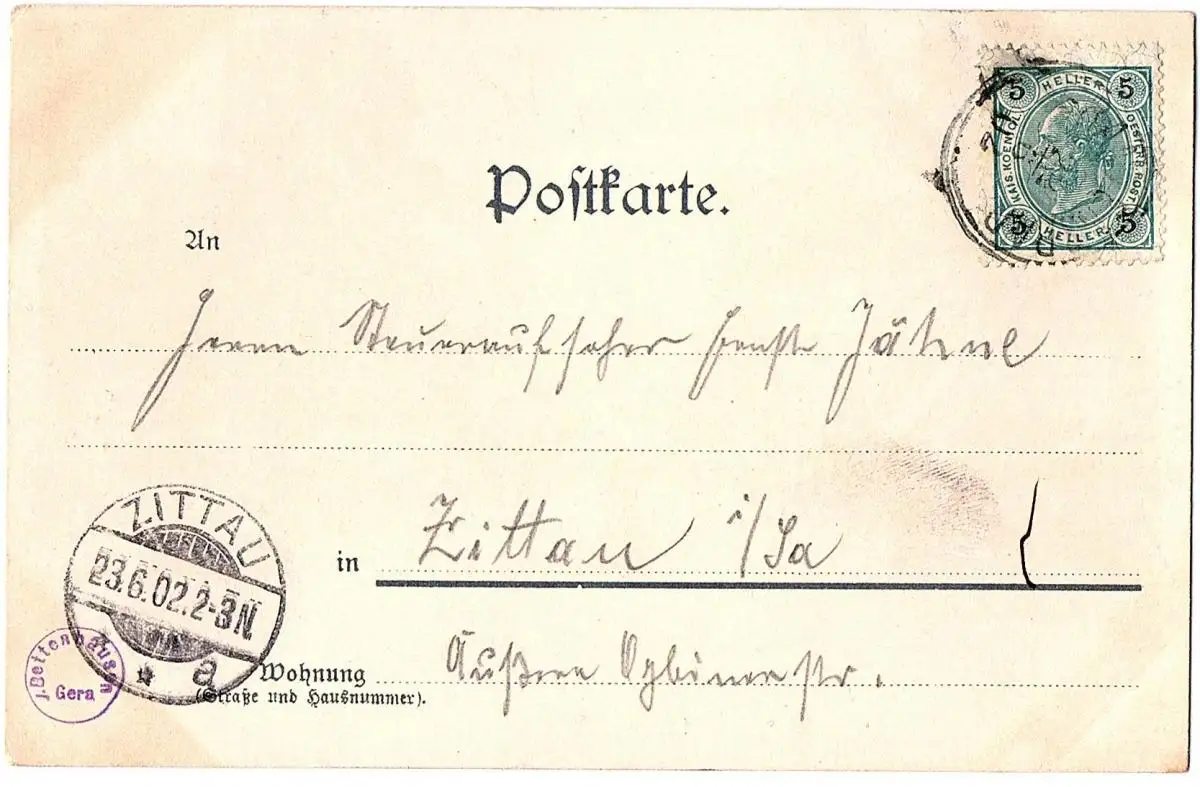 5 HELLER 5
KAIS. KOENIGL. OESTERR. POST.
5 HELLER 5
Postkarte.
An
Herrn Steueraufseher Ernst Jähne
in Zittau i/Sa
ZITTAU
23.6.02.2-3N
a
J. Bettenhausen
Gera
Wohnung Äußere Oybinerstr.
(Straße und Hausnummer).